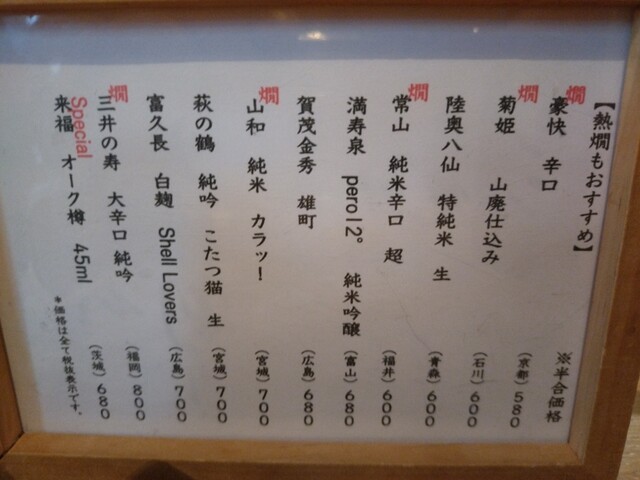 【熱燗もおすすめ】 ※半合価格
燗 豪快 辛口 (京都) 580
燗 菊姫 山廃仕込み (石川) 600
陸奥八仙 特純米 生 (青森) 600
燗 常山 純米辛口 超 (福井) 600
満寿泉 pero12° 純米吟醸 (富山) 680
賀茂金秀 雄町 (広島) 680
燗 山和 純米 カラッ! (宮城) 700
萩の鶴 純吟 こたつ猫 生 (宮城) 700
富久長 白麹 Shell Lovers (広島) 700
燗 三井の寿 大辛口 純吟 (福岡) 800
Special
来福 オーク樽 45ml (茨城) 680
*価格は全て税抜表示です。